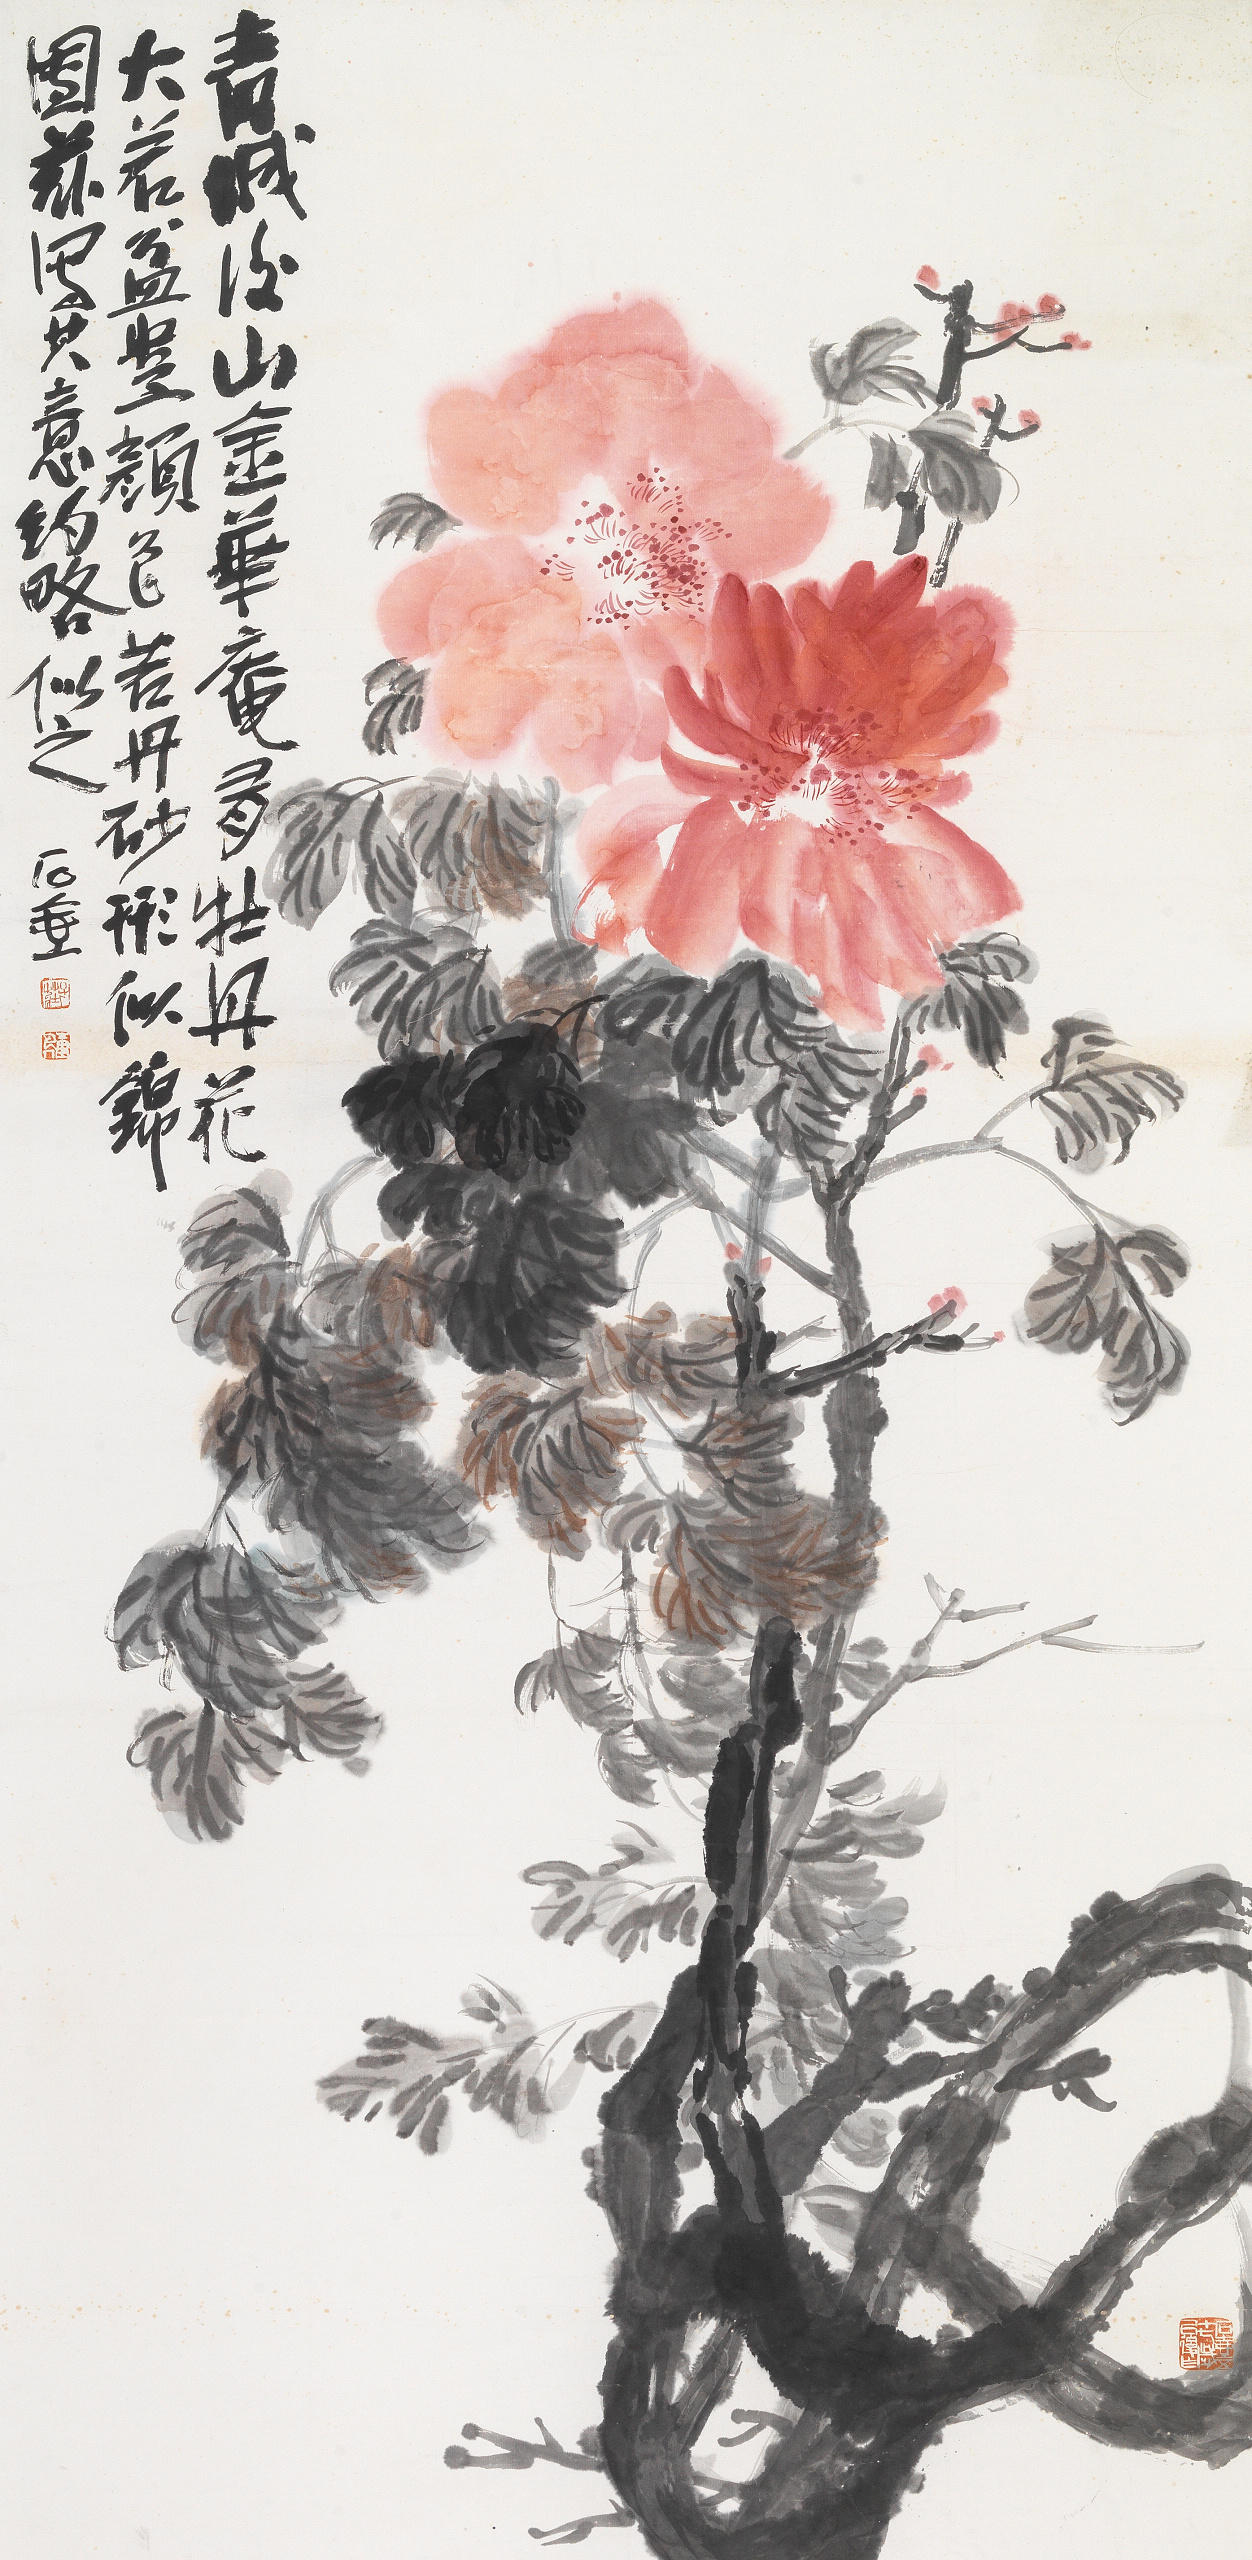 青城後山金華庵有牡丹花
大若盆豎顏色若丹砂形似錦
園茲寫其意約略似之
石壺